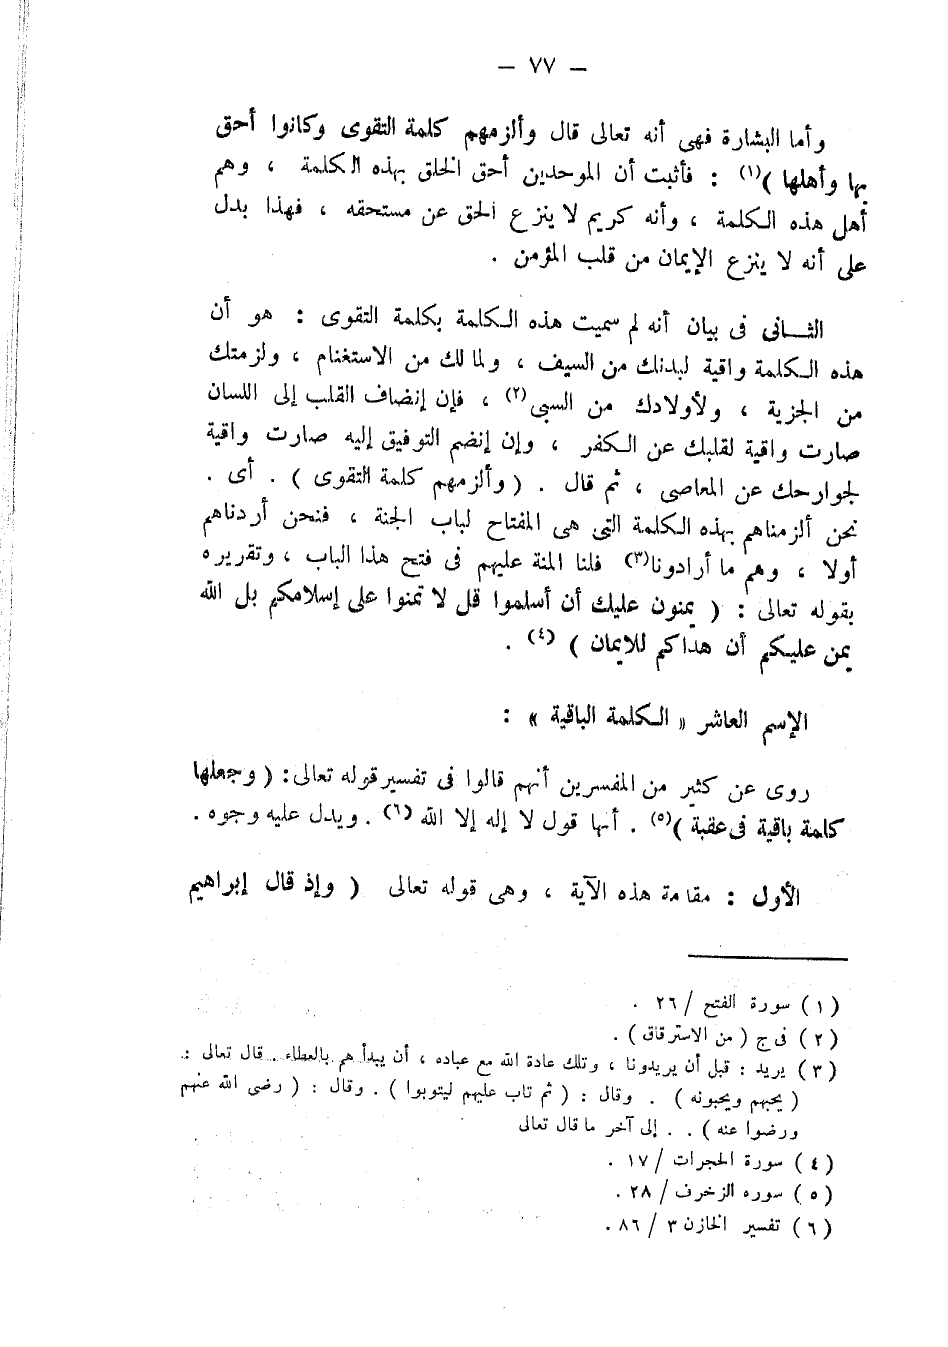 — ٧٧ —
وأما البشارة فهى أنه تعالى قال وألزمهم كلمة التقوى وكانوا أحق
بها وأهلها )(١) : فأثبت أن الموحدين أحق الخلق بهذه الكلمة ، وهم
أهل هذه الكلمة ، وأنه كريم لا ينزع الحق عن مستحقه ، فهذا بدل
على أنه لا ينزع الإيمان من قلب المؤمن .
الثـانى فى بيان أنه لم سميت هذه الكلمة بكلمة التقوى : هو أن
هذه الكلمة واقية لبدنك من السيف ، ولمالك من الاستغنام ، ولزمتك
من الجزية ، ولأولادك من السبى(٢) ، فإن إنضاف القلب إلى اللسان
صارت واقية لقلبك عن الكفر ، وإن إنضم التوفيق إليه صارت واقية
لجوارحك عن المعاصى ، ثم قال . ( وألزمهم كلمة التقوى ) . أى .
نحن ألزمناهم بهذه الكلمة التى هى المفتاح لباب الجنة ، فنحن أردناهم
أولا ، وهم ما أرادونا(٣) فلنا المنة عليهم فى فتح هذا الباب ، وتقريره
بقوله تعالى : ( يمنون عليك أن أسلموا قل لا تمنوا على إسلامكم بل الله
يمن عليكم أن هداكم للايمان ) (٤) .
الإسم العاشر « الكلمة الباقية » :
روى عن كثير من المفسرين أنهم قالوا فى تفسير قوله تعالى : ( وجعلها
كلمة باقية فى عقبة )(٥) . أنها قول لا إله إلا الله (٦) . ويدل عليه وجوه .
الأول : مقامة هذه الآية ، وهى قوله تعالى ( وإذ قال إبراهيم
(١) سورة الفتح / ٢٦ .
(٢) فى ج ( من الاسترقاق ) .
(٣) يريد : قبل أن يريدونا ، وتلك عادة الله مع عباده ، أن يبدأ هم بالعطاء . قال تعالى :
( يحبهم ويحبونه ) . وقال : ( ثم تاب عليهم ليتوبوا ) . وقال : ( رضى الله عنهم
ورضوا عنه ) . . إلى آخر ما قال تعالى
(٤) سورة الحجرات / ١٧ .
(٥) سوره الزخرف / ٢٨ .
(٦) تفسير الخازن ٣ / ٨٦ .